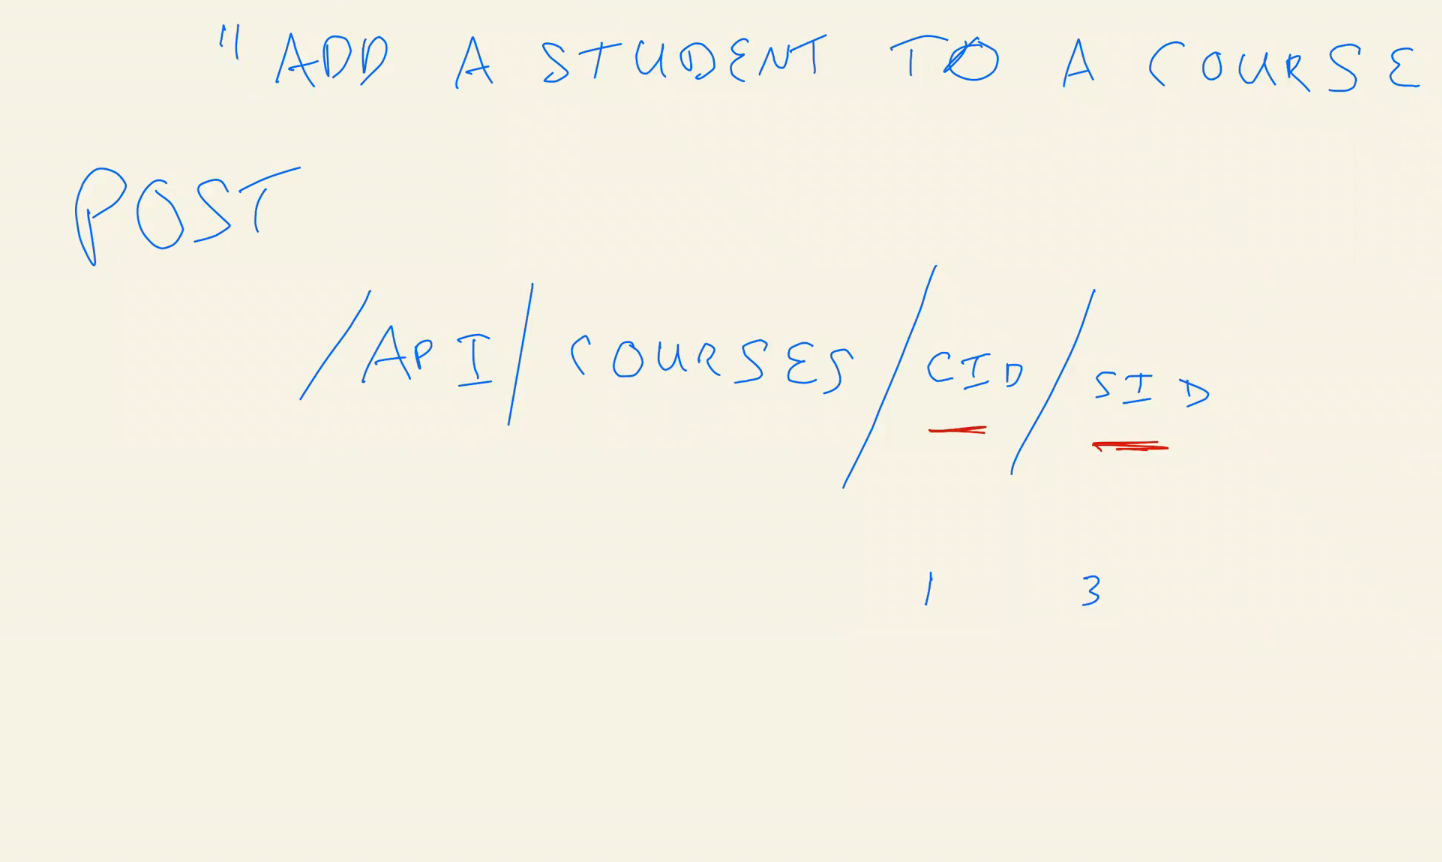 "ADD A STUDENT TO A COURSE
POST
/API/COURSES/CID/SID
1 3